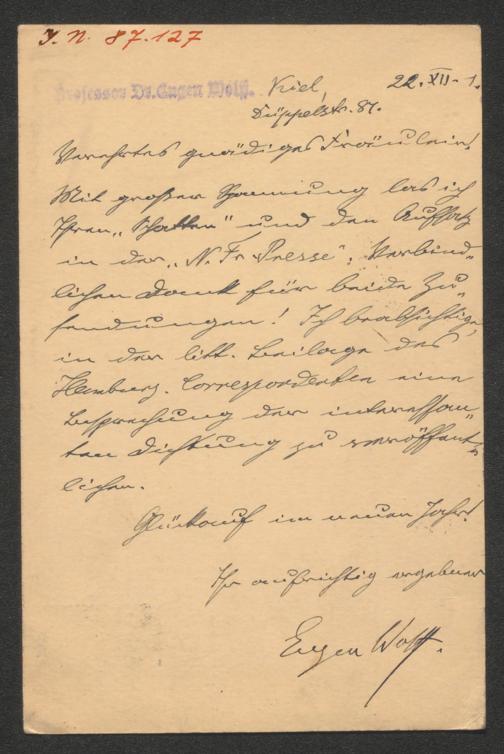 J. N. 87.127
Professor Dr. Eugen Wolff.
Kiel, 22. XII. 1.
Düppelstr. 81.
Verehrtes gnädiges Fräulein!
Mit großer Spannung las ich
Ihren „Schatten“ und den Aufsatz
in der „N. Fr. Presse“. Verbind-
lichen Dank für beide Zu-
sendungen! Ich beabsichtige,
in der litt. Beilage des
Hamburg. Correspondenten eine
Besprechung der interessan-
ten Dichtung zu veröffent-
lichen.
Glückauf im neuen Jahr!
Ihr aufrichtig ergebener
Eugen Wolff.